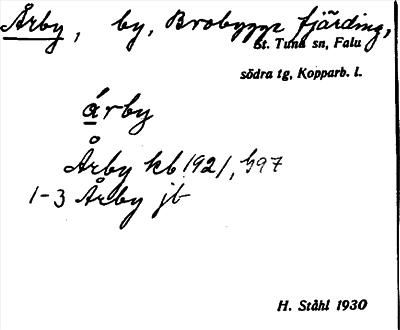 Årby, by, Brobygge fjärding,
St. Tuna sn, Falu
södra tg, Kopparb. l.
árby
Årby kb 1921, 597
1-3 Årby jb
H. Ståhl 1930